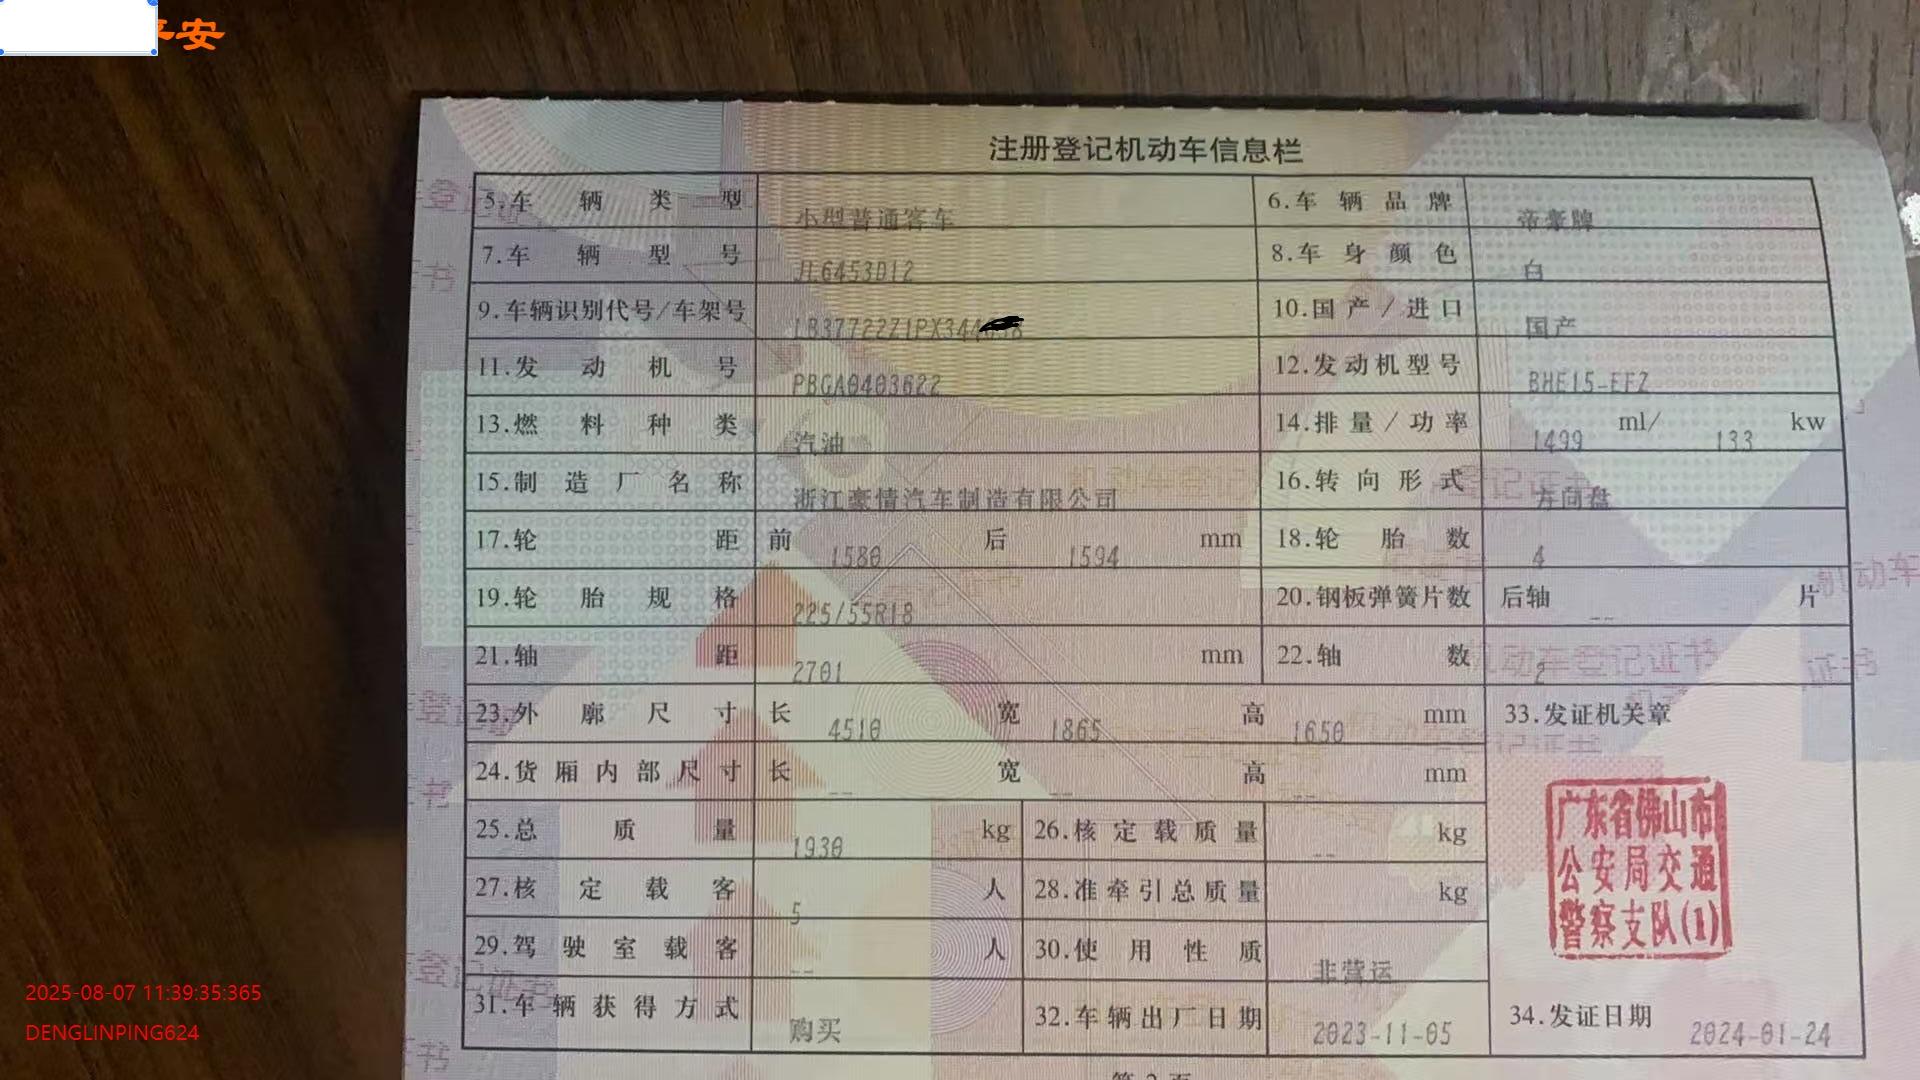 平安
注册登记机动车信息栏
5.车辆类型 小型普通客车 6.车辆品牌 帝豪牌
7.车辆型号 JL6453D12 8.车身颜色 白
9.车辆识别代号/车架号 LB37722Z1PX344 10.国产/进口 国产
11.发动机号 PBGA0403622 12.发动机型号 BHE15-EFZ
13.燃料种类 汽油 14.排量/功率 1499 ml/ 133 kw
15.制造厂名称 浙江豪情汽车制造有限公司 16.转向形式 方向盘
17.轮距 前 1580 后 1594 mm 18.轮胎数 4
19.轮胎规格 225/55R18 20.钢板弹簧片数 后轴 -- 片
21.轴距 2701 mm 22.轴数 2
23.外廓尺寸 长 4510 宽 1865 高 1650 mm 33.发证机关章
24.货厢内部尺寸 长 -- 宽 -- 高 -- mm
25.总质量 1930 kg 26.核定载质量 -- kg
27.核定载客 5 人 28.准牵引总质量 kg
29.驾驶室载客 -- 人 30.使用性质 非营运
31.车辆获得方式 购买 32.车辆出厂日期 2023-11-05 34.发证日期 2024-01-24
广东省佛山市
公安局交通
警察支队(1)
2025-08-07 11:39:35:365
DENGLINPING624